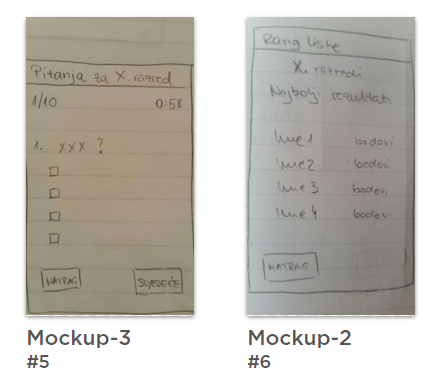 Pitanja za X. razred
1/10 0:58
1. xxx ?
NATRAG SLJEDEĆE
Mockup-3
#5
Rang liste
X. razredi
Najbolji rezultati
Ime 1 bodovi
Ime 2 bodovi
Ime 3 bodovi
Ime 4 bodovi
NATRAG
Mockup-2
#6